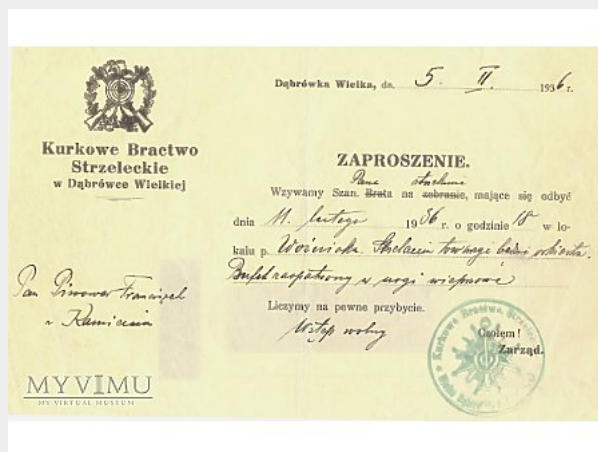 Kurkowe Bractwo
Strzeleckie
w Dąbrówce Wielkiej
Dąbrówka Wielka, dn. 5. II. 1936 r.
ZAPROSZENIE.
Pana strzelanie
Wzywamy Szan. Brata na zebranie, mające się odbyć
dnia 11. lutego 1936 r. o godzinie 18 w lo-
kalu p. Woźniaka. Strzelaniu towarzyszy będzie orkiestra.
Bufet zaopatrzony w nogi wieprzowe
Liczymy na pewne przybycie.
Wstęp wolny
Czołem!
Zarząd.
Pan Piwowar Franciszek
w Kamieniu
Kurkowe Bractwo Strzel
MYVIMU
MY VIRTUAL MUSEUM